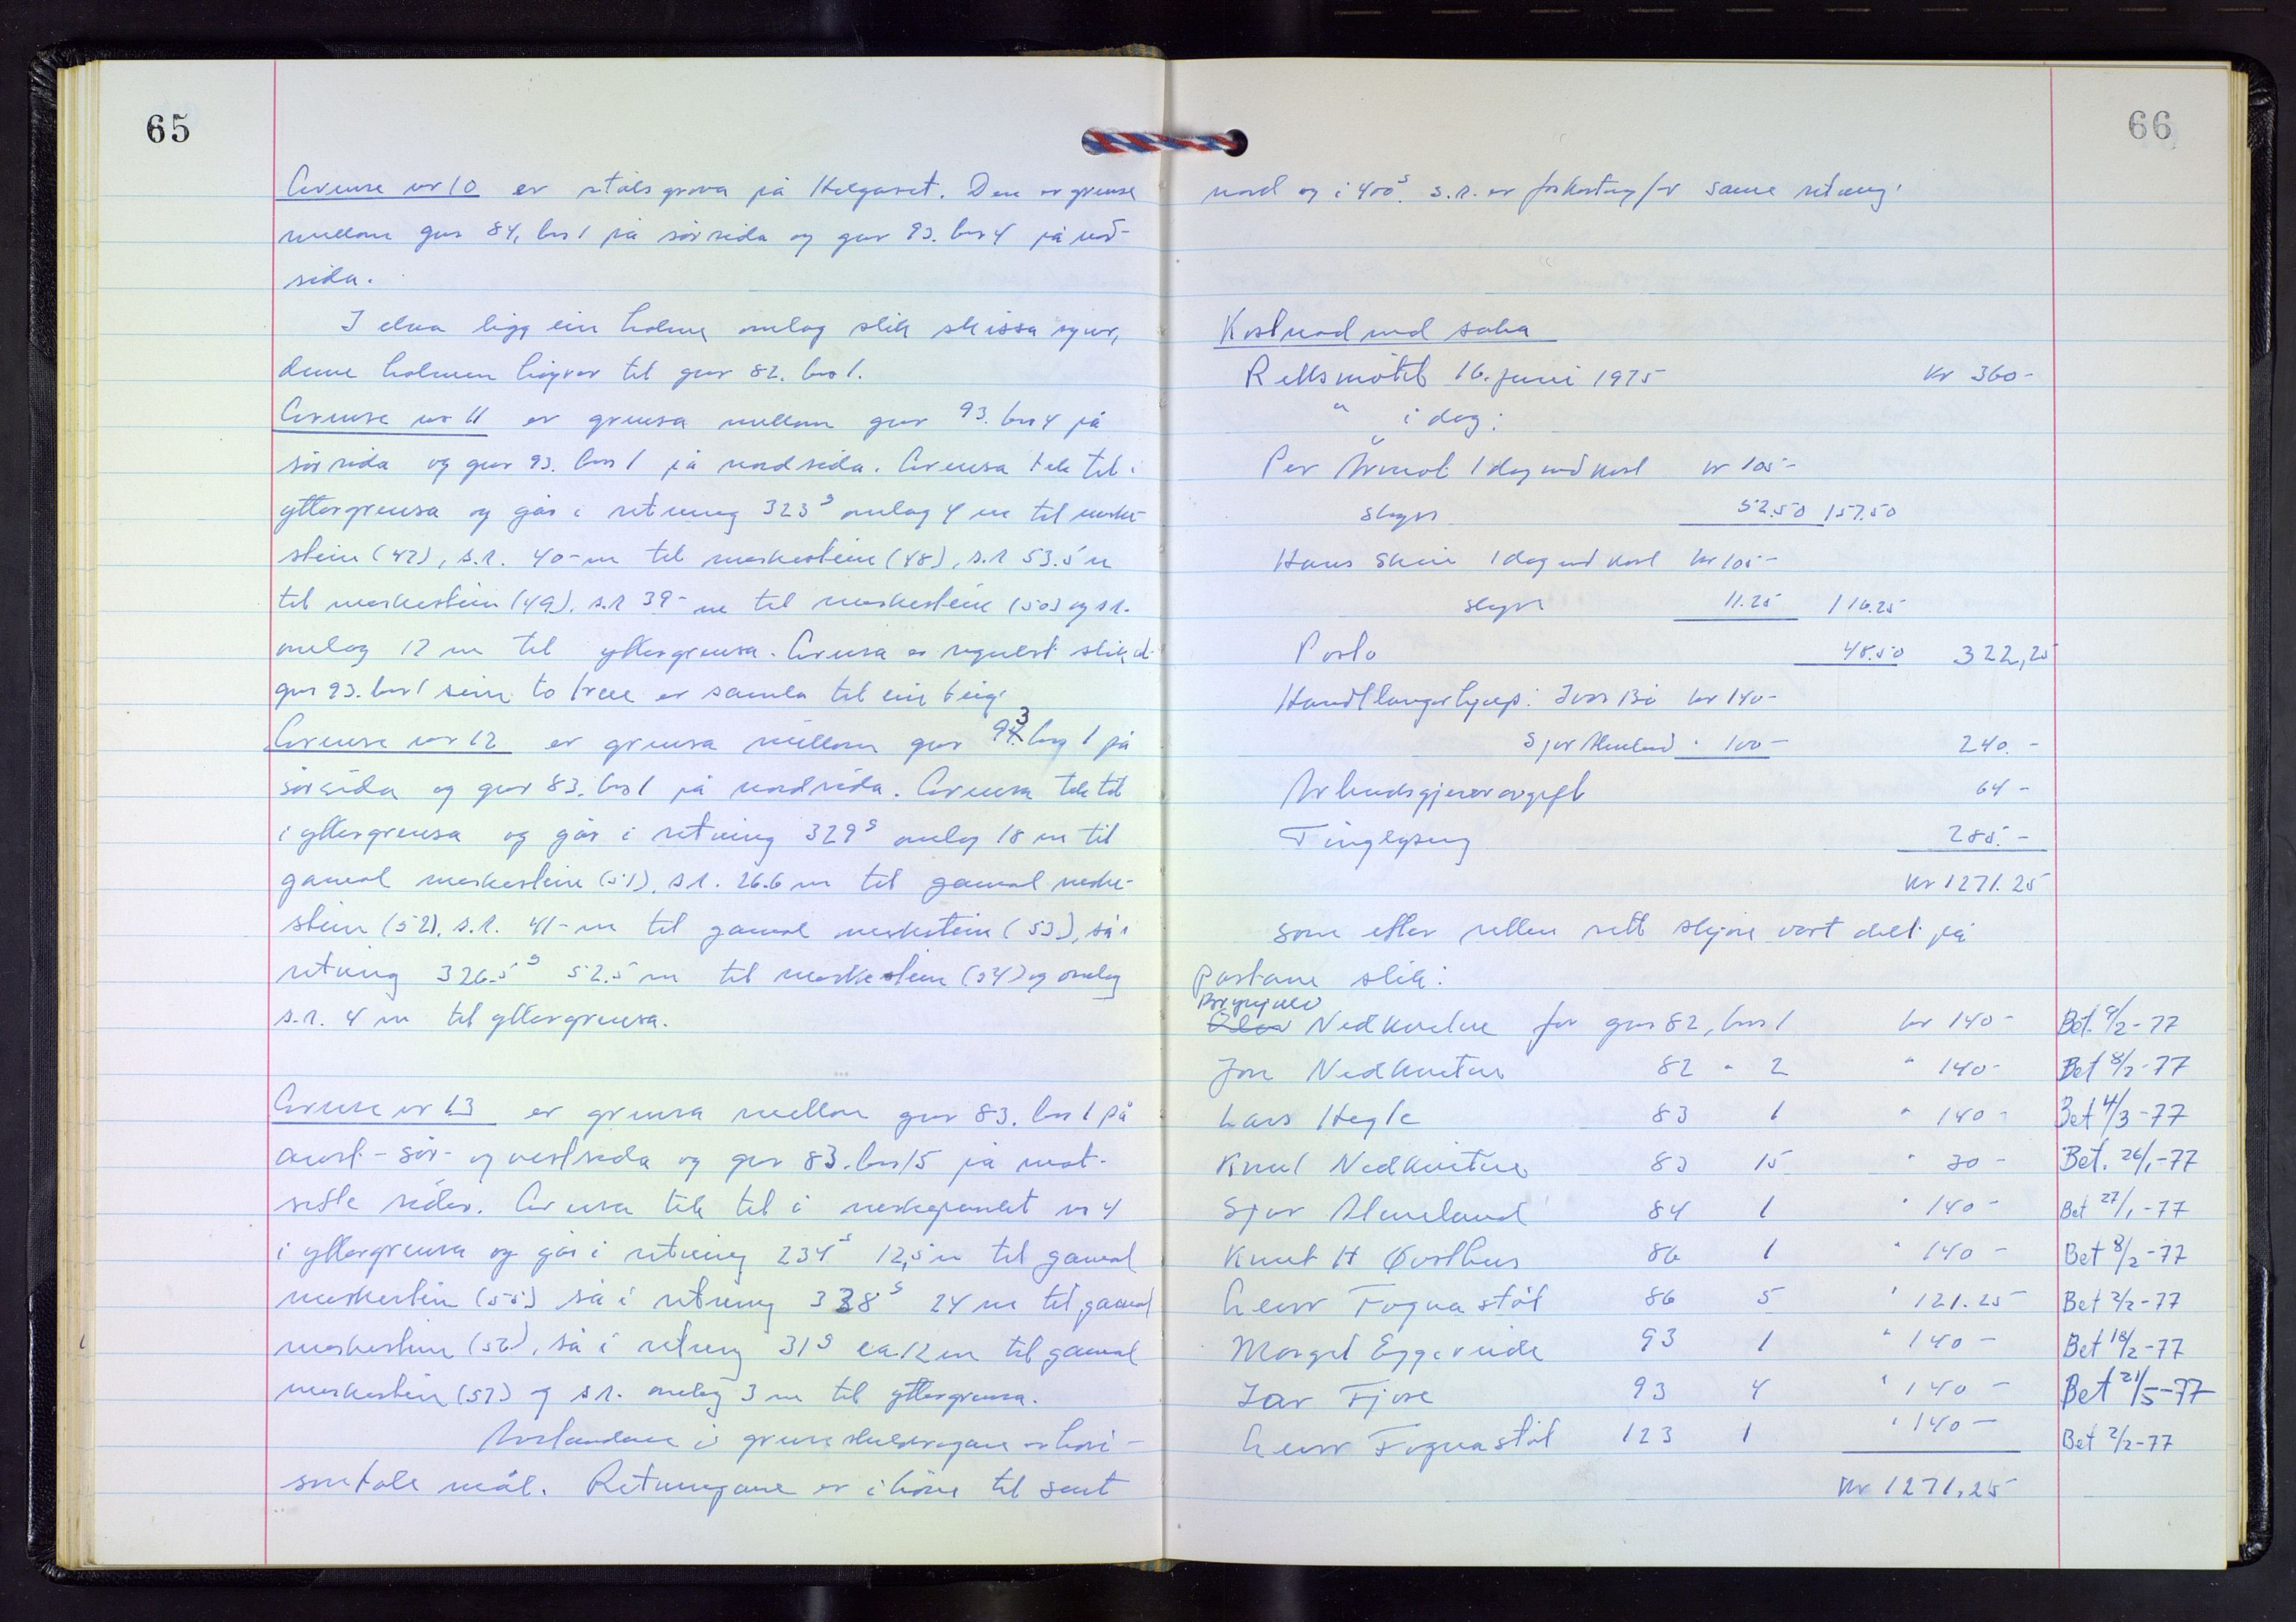 65
Grense nr 10 er stølsgrova på Helgaset. Den er grense
mellom gnr 84, bnr 1 på sørsida og gnr 93. bnr 4 på nord-
sida.
I elva ligg ein holme omlag slik skissa syner,
denne holmen høyrer til gnr 82. bnr 1.
Grense nr 11 er grensa mellom gnr 93. bnr 4 på
sørsida og gnr 93. bnr 1 på nordsida. Grensa tek til i
yttergrensa og går i retning 323g omlag 4 m til merke-
stein (47), s.r. 40- m til merkestein (48), s.r 53.5 m
til merkestein (49), s.r 39- m til merkestein (50) og s.r.
omlag 12 m til yttergrensa. Grensa er regulert slik at
gnr 93. bnr 1 sine to er samla til ein teig.
Grense nr 12 er grensa mellom gnr 93. bnr 1 på
sørsida og gnr 83. bnr 1 på nordsida. Grensa tek til
i yttergrensa og går i retning 329g omlag 18 m til
gamal merkestein (51), s.r. 26.6 m til gamal merke-
stein (52). s.r. 41- m til gamal merkestein (53), så i
retning 326.5g 52.5 m til merkestein (54) og omlag
s.r. 4 m til yttergrensa.
Grense nr 13 er grensa mellom gnr 83. bnr 1 på
aust- sør- og vestsida og gnr 83. bnr 15 på mot-
sette sider. Grensa tek til i merkepunkt nr 4
i yttergrensa og går i retning 234g 12,5 m til gamal
merkestein (55) så i retning 338g 24 m til gamal
merkestein (56), så i retning 31g ca 12 m til gamal
merkestein (57) og s.r. omlag 3 m til yttergrensa.
Avstandane i grenseskildringane er hori-
sontale mål. Retningane er i høve til sant
66
nord og i 400g. s.r. er forkorting for same retning.
Kostnad med saka
Rettsmøtet 16. juni 1975 kr 360-
" i dag:
Per Århmot 1 dag med kost kr 105-
skyss 52.50 157.50
Hans Skeie 1 dag med kost kr 105-
skyss 11.25 116.25
Porto 48.50 322,25
Handtlangarhjelp: Ivar Bø kr 140-
Sjur Almeland " 100- 240.-
Arbeidsgjevaravgift 64-
Tinglysing 285.-
kr 1271.25
som etter retten sitt skjøn vart delt på
partane slik:
Brynjulv
Olav Nedkvitne for gnr 82, bnr 1 kr 140- Bet. 9/2-77
Jon Nedkvitne 82 " 2 " 140- Bet 8/2-77
Lars Hegle 83 1 " 140- Bet 4/3-77
Knut Nedkvitne 83 15 " 30- Bet. 26/1-77
Sjur Almeland 84 1 " 140- Bet 27/1-77
Knut H Øvsthus 86 1 " 140- Bet 8/2-77
Geirr Fognastøl 86 5 " 121.25 Bet 2/2-77
Margit Eggereide 93 1 " 140- Bet 18/2-77
Ivar Fjose 93 4 " 140- Bet 21/5-77
Geirr Fognastøl 123 1 " 140- Bet 2/2-77
kr 1271,25